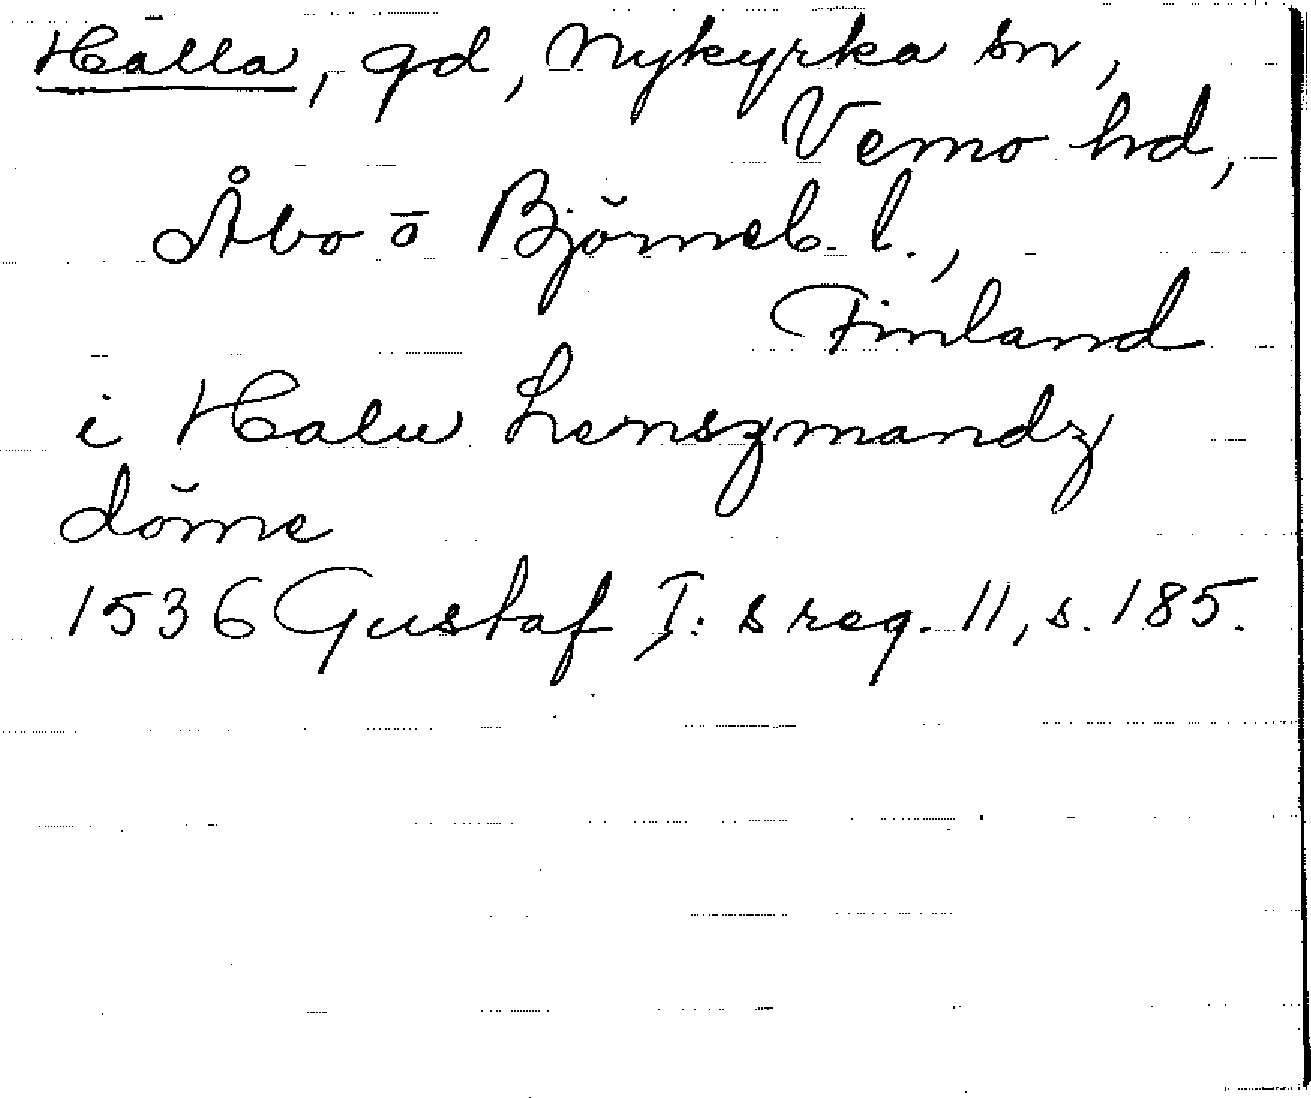 Hälla, gd, Nykyrka sn,
Vemo hd,
Åbo o Björneb. l.,
Finland
i Halu Lenszmandz
döme
1536 Gustaf I:s reg. 11, s. 185.